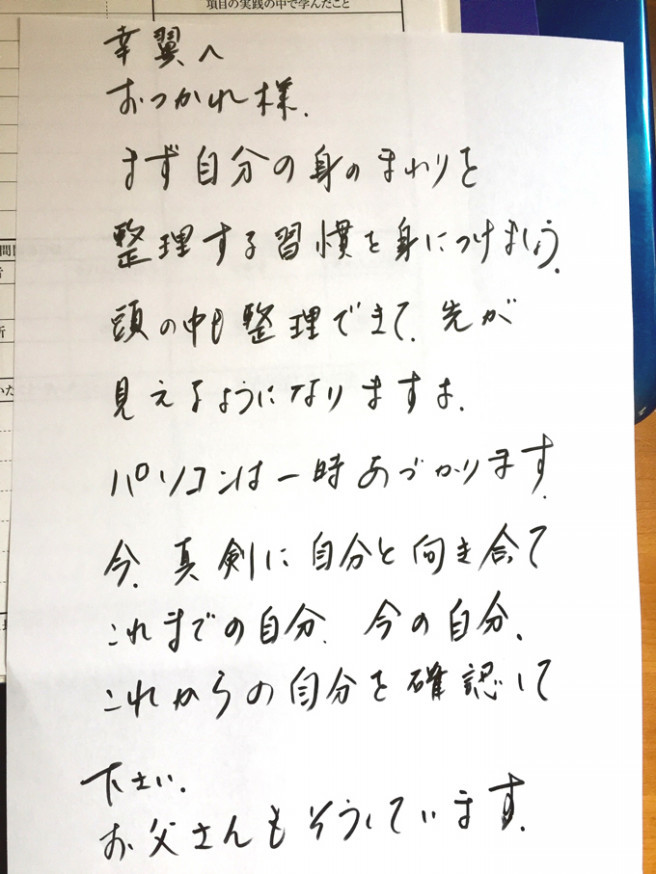 項目の実践の中で学んだこと
幸翼へ
おつかれ様.
まず自分の身のまわりを
整理する習慣を身につけましょう.
頭の中も整理できて、先が
見えるようになりますよ.
パソコンは一時あづかります.
今、真剣に自分と向き合て
これまでの自分、今の自分、
これからの自分を確認して
下さい.
お父さんもそうしています.